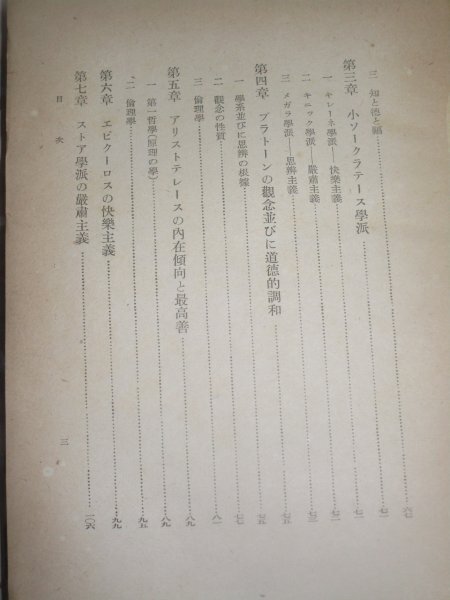 三 知と德と福……六七
第三章 小ソークラテース學派……七一
一 キレーネ學派——快樂主義……七一
二 キニック學派——嚴肅主義……七三
三 メガラ學派——思辨主義……七五
第四章 プラトーンの觀念並びに道德的調和……七五
一 學系並びに思辨の根據……七七
二 觀念の性質……八一
三 倫理學……八九
第五章 アリストテレースの內在傾向と最高善……八九
一 第一哲學(原理の學)……八九
二 倫理學……九五
第六章 エピクーロスの快樂主義……九九
第七章 ストア學派の嚴肅主義……一〇六
目次
三